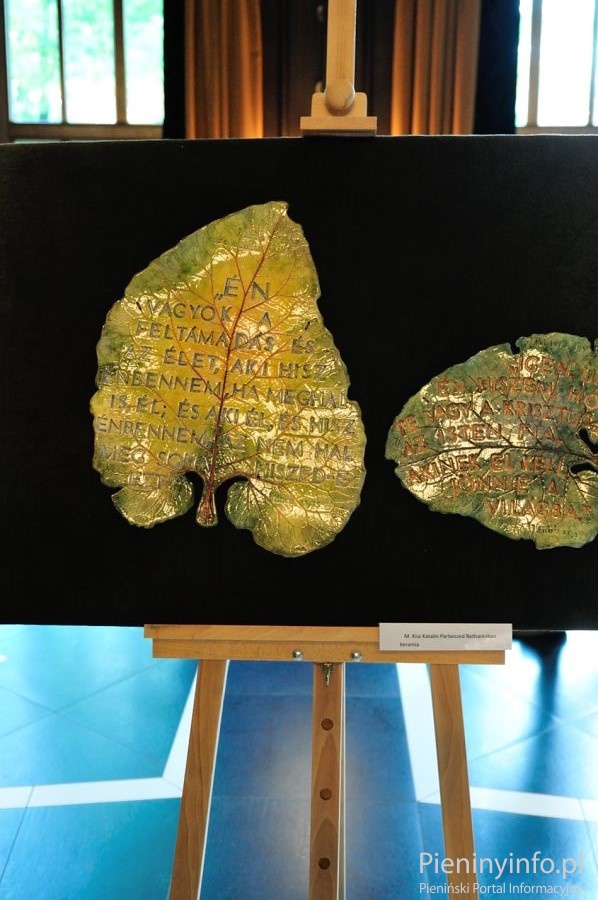 „ÉN
VAGYOK A
FELTÁMADÁS ÉS
AZ ÉLET, AKI HISZ
ÉNBENNEM, HA MEGHAL
IS, ÉL; ÉS AKI ÉL, ÉS HISZ
ÉNBENNEM, AZ NEM HAL
MEG SOHA. HISZED-E
EZT?
IGEN,
ÉN HISZEM, HO
TE VAGY A KRISZTUS,
AZ ISTEN FIA,
AKINEK EL KELL
JÖNNIE A
VILÁGBA."
M. Kiss Katalin Párbeszéd Bethániában
kerámia
Pieninyinfo.pl
Pieniński Portal Informacyjny